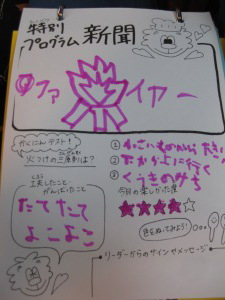 特別
プログラム 新聞
①ファイヤー
かくにんテスト!
火つけの三原則は?
① 小さいものから大きい
② たかかよに行く
③ くうきのみち
工夫したこと
がんばったこと
たてたて
よこよこ
今日の楽しかった度
色をぬってみよう!
リーダーからのサインやメッセージ